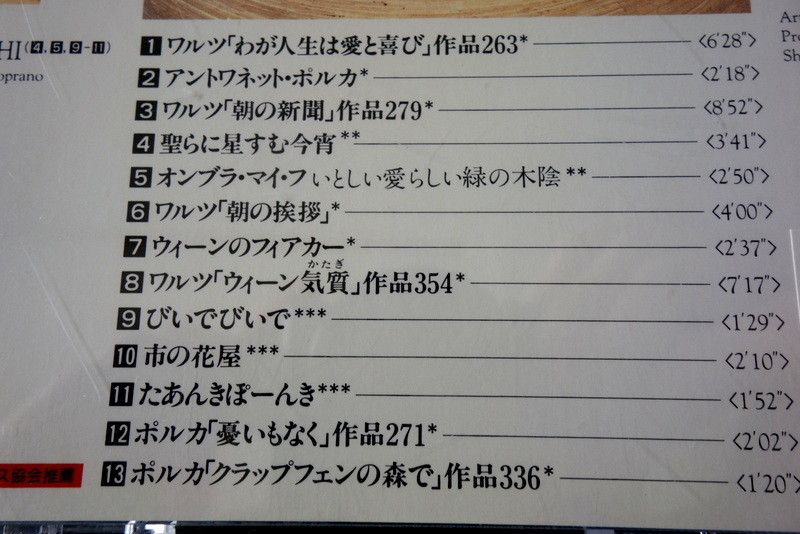 HI(4,5,9-11)
oprano
1 ワルツ「わが人生は愛と喜び」作品263* <6'28">
2 アントワネット・ポルカ* <2'18">
3 ワルツ「朝の新聞」作品279* <8'52">
4 聖らに星すむ今宵** <3'41">
5 オンブラ・マイ・フ いとしい愛らしい緑の木陰** <2'50">
6 ワルツ「朝の挨拶」* <4'00">
7 ウィーンのフィアカー* <2'37">
かたぎ
8 ワルツ「ウィーン気質」作品354* <7'17">
9 びいでびいで*** <1'29">
10 市の花屋*** <2'10">
11 たあんきぽーんき*** <1'52">
12 ポルカ「憂いもなく」作品271* <2'02">
13 ポルカ「クラップフェンの森で」作品336* <1'20">
ス協会推薦
Art
Pro
Sh